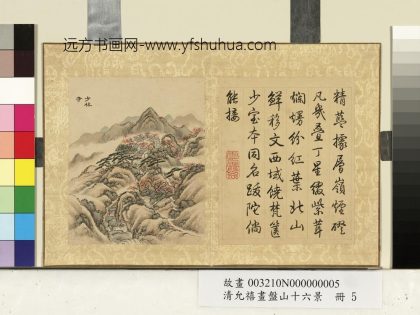 远方书画网-www.yfshuhua.com
少林
寺
精藍據層嶺煙磴
凡幾疊丁星綴紫茸
爛熳紛紅葉北山
鮮移文西域饒梵篋
少室本同名跋陀倘
能
故畫 003210N000000005
清允禧畫盤山十六景 冊 5